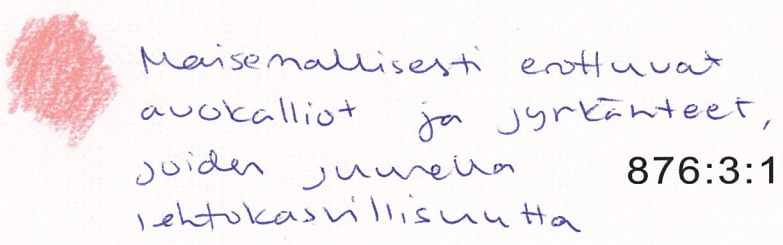 Maisemallisesti erottuvat
avokalliot ja jyrkänteet,
joiden juurella 876:3:1
lehtokasvillisuutta